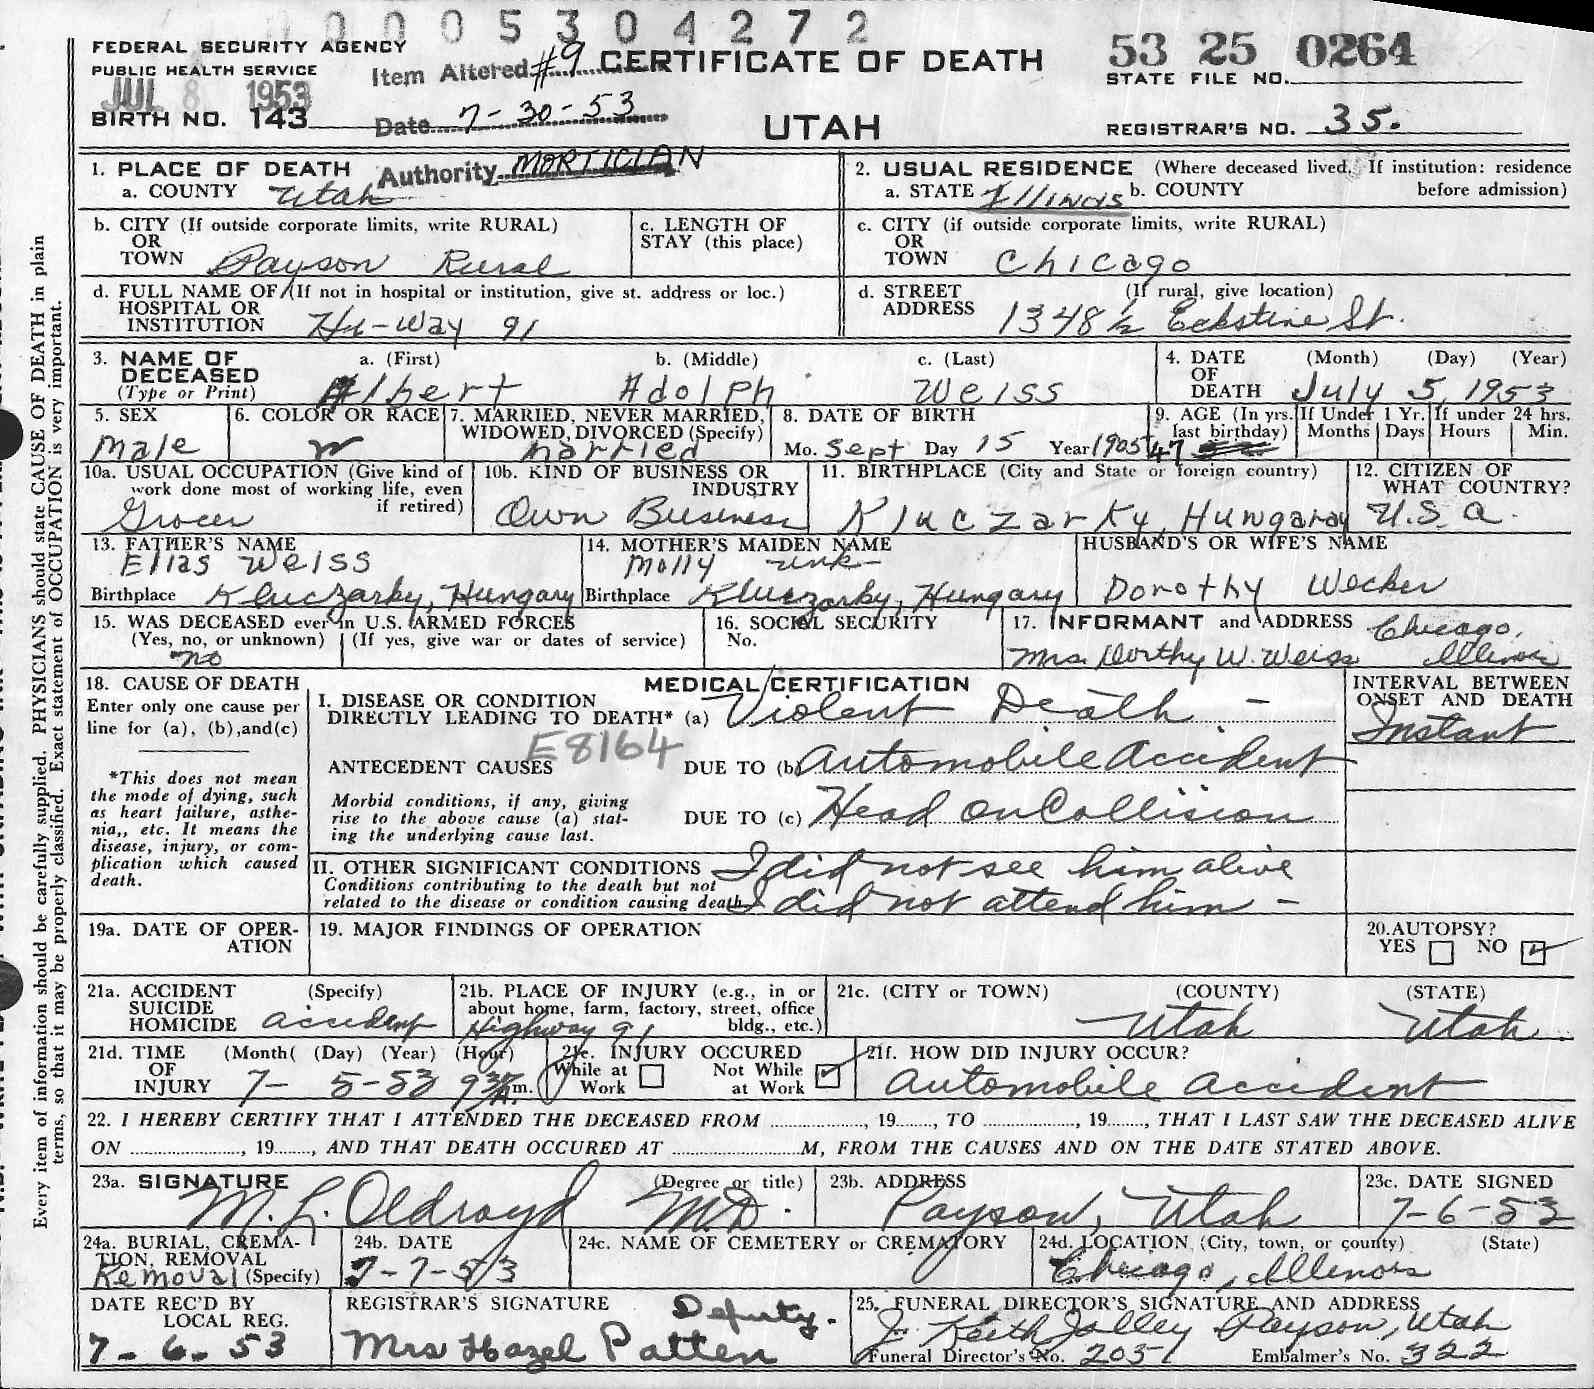 0005304272
FEDERAL SECURITY AGENCY
PUBLIC HEALTH SERVICE
JUL 8 1953
BIRTH NO. 143
Item Altered #9
Date 7-30-53
Authority MORTICIAN
CERTIFICATE OF DEATH
UTAH
53 25 0264
STATE FILE NO.
REGISTRAR'S NO. 35.
1. PLACE OF DEATH
a. COUNTY Utah
2. USUAL RESIDENCE (Where deceased lived. If institution: residence before admission)
a. STATE Illinois b. COUNTY
b. CITY (If outside corporate limits, write RURAL)
OR
TOWN Payson Rural
c. LENGTH OF
STAY (this place)
c. CITY (if outside corporate limits, write RURAL)
OR
TOWN Chicago
d. FULL NAME OF (If not in hospital or institution, give st. address or loc.)
HOSPITAL OR
INSTITUTION Hi-Way 91
d. STREET (If rural, give location)
ADDRESS 1348½ Eckstine St.
3. NAME OF
DECEASED
(Type or Print)
a. (First) b. (Middle) c. (Last)
Albert Adolph Weiss
4. DATE (Month) (Day) (Year)
OF
DEATH July 5, 1953
5. SEX
Male
6. COLOR OR RACE
W
7. MARRIED, NEVER MARRIED,
WIDOWED, DIVORCED (Specify)
Married
8. DATE OF BIRTH
Mo. Sept Day 15 Year 1905
9. AGE (In yrs.
last birthday)
47
If Under 1 Yr.
Months Days
If under 24 hrs.
Hours Min.
10a. USUAL OCCUPATION (Give kind of
work done most of working life, even
if retired)
Grocer
10b. KIND OF BUSINESS OR
INDUSTRY
Own Business
11. BIRTHPLACE (City and State or foreign country)
Kluczarky, Hungaray
12. CITIZEN OF
WHAT COUNTRY?
U.S.A.
13. FATHER'S NAME
Elias Weiss
Birthplace Kluczarky, Hungary
14. MOTHER'S MAIDEN NAME
Molly Unk-
Birthplace Kluczarky, Hungary
HUSBAND'S OR WIFE'S NAME
Dorothy Wecker
15. WAS DECEASED ever in U.S. ARMED FORCES
(Yes, no, or unknown) (If yes, give war or dates of service)
no
16. SOCIAL SECURITY
No.
17. INFORMANT and ADDRESS Chicago,
Mrs. Dorthy W. Weiss Illinois
18. CAUSE OF DEATH
Enter only one cause per
line for (a), (b),and(c)
*This does not mean
the mode of dying, such
as heart failure, asthe-
nia,, etc. It means the
disease, injury, or com-
plication which caused
death.
MEDICAL CERTIFICATION
I. DISEASE OR CONDITION
DIRECTLY LEADING TO DEATH* (a) Violent Death -
E8164
ANTECEDENT CAUSES DUE TO (b) Automobile Accident
Morbid conditions, if any, giving
rise to the above cause (a) stat-
ing the underlying cause last.
DUE TO (c) Head on Collision
II. OTHER SIGNIFICANT CONDITIONS I did not see him alive
Conditions contributing to the death but not
related to the disease or condition causing death. I did not attend him -
INTERVAL BETWEEN
ONSET AND DEATH
Instant
19a. DATE OF OPER-
ATION
19. MAJOR FINDINGS OF OPERATION
20. AUTOPSY?
YES NO
21a. ACCIDENT (Specify)
SUICIDE
HOMICIDE accident
21b. PLACE OF INJURY (e.g., in or
about home, farm, factory, street, office
bldg., etc.)
Highway 91
21c. (CITY or TOWN) (COUNTY) (STATE)
Utah Utah
21d. TIME (Month( (Day) (Year) (Hour)
OF
INJURY 7- 5-53 m.
21e. INJURY OCCURED
While at Work Not While at Work
21f. HOW DID INJURY OCCUR?
Automobile accident
22. I HEREBY CERTIFY THAT I ATTENDED THE DECEASED FROM ................, 19......., TO ................, 19......., THAT I LAST SAW THE DECEASED ALIVE
ON ................, 19......., AND THAT DEATH OCCURED AT ................M, FROM THE CAUSES AND ON THE DATE STATED ABOVE.
23a. SIGNATURE (Degree or title)
M. L. Oldroyd M.D.
23b. ADDRESS
Payson, Utah
23c. DATE SIGNED
7-6-53
24a. BURIAL, CREMA-
TION, REMOVAL
Removal (Specify)
24b. DATE
7-7-53
24c. NAME OF CEMETERY or CREMATORY
24d. LOCATION (City, town, or county) (State)
Chicago, Illinois
DATE REC'D BY
LOCAL REG.
7-6-53
REGISTRAR'S SIGNATURE Deputy.
Mrs Hazel Patten
25. FUNERAL DIRECTOR'S SIGNATURE AND ADDRESS
J. Keith Jolley Payson, Utah
Funeral Director's No. 205 Embalmer's No. 322
Every item of information should be carefully supplied. PHYSICIANS should state CAUSE OF DEATH in plain
terms, so that it may be properly classified. Exact statement of OCCUPATION is very important.